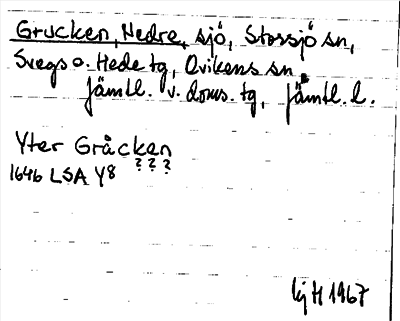 Grucken, Nedre, sjö, Storsjö sn,
Svegs o. Hede tg, Ovikens sn
Jämtl. v. doms. tg, Jämtl. l.
Yter Gråcken
? ? ?
1646 LSA Y8
H 1967